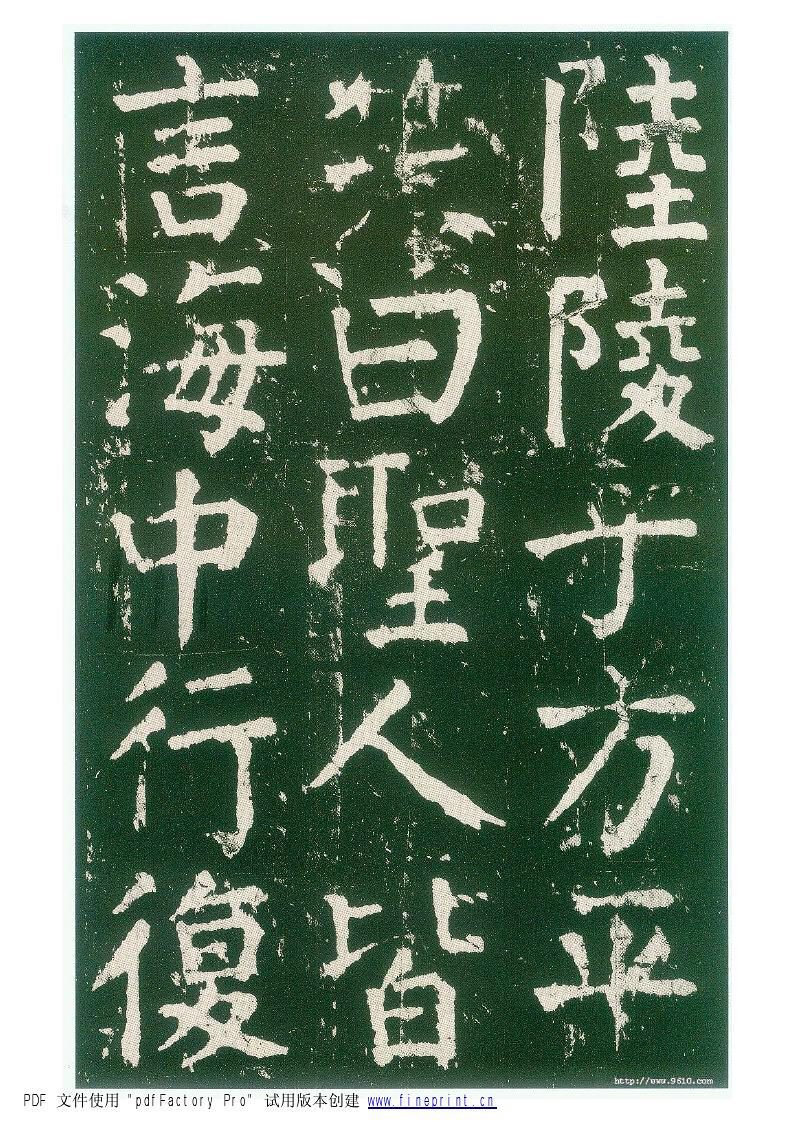 陸陵乎方平
笑曰聖人皆
言海中行復
http://www.9610.com
PDF 文件使用 "pdfFactory Pro" 试用版本创建 www.fineprint.cn